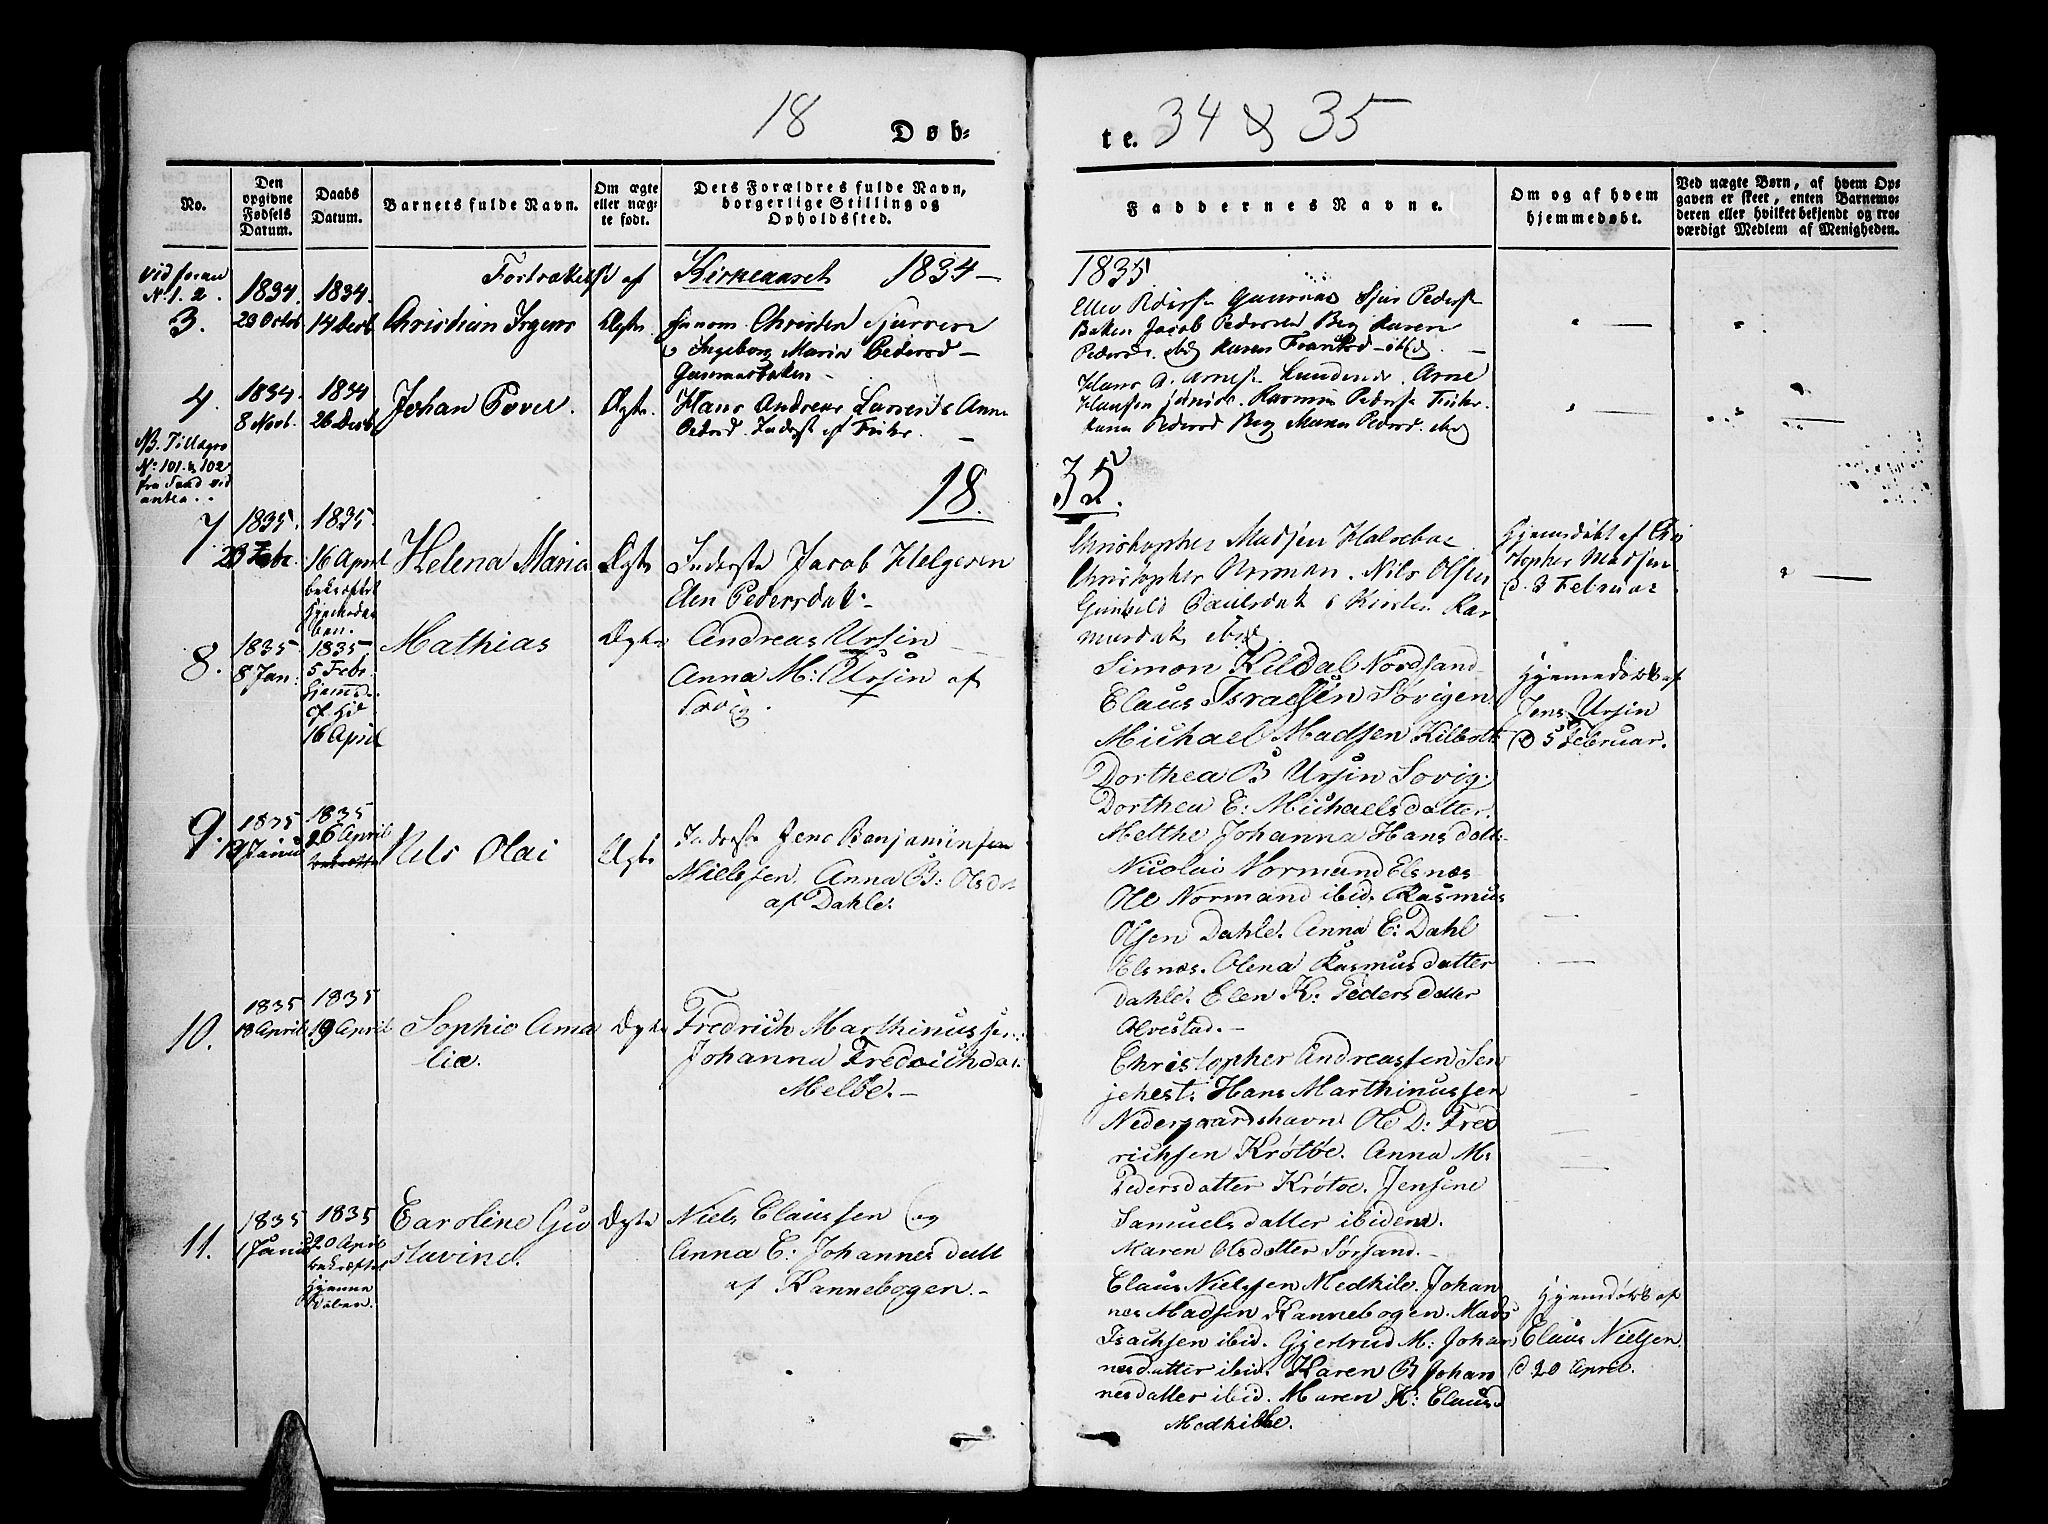 18 34 & 35
Døb-
te.
No.
Den
opgivne
Fødsels
Datum.
Daabs
Datum.
Barnets fulde Navn.
Om ægte
eller uæg-
te født.
Dets Forældres fulde Navn,
borgerlige Stilling og
Opholdssted.
Faddernes Navne.
Om og af hvem
hjemmedøbt.
Ved uægte Børn, af hvem Op-
gaven er skeet, enten Barnemo-
deren eller hvilket bekjendt og tro-
værdigt Medlem af Menigheden.
vid foran
No. 1. 2.
af Kirkeaaret 1834 —
1835
3.
1834.
20 Octob
1834.
14 Decb
Christian Irgens
Ægte
Christen Sjursen
Ingeborg Maria Pedersd —
Peders Gunnnæs Sjur Peders
Baken Jacob Pedersen Berg Karen
Pedersd. ibd Karen Frantsd — ibid.
4.
1834
8 Novb.
1834
26 Decb
Johan Povel.
Ægte.
Hans Andreas Anna
Pedersd. Inderst af
Hans A. Arnes Arne
Hansen junior. Rasmus Peders
Karen Pedersd Berg Maren Pedersd. ibd
NB. Tillægges
No. 101. & 102
fra Sand vid
antea..
18. 35.
7
1835.
23 Febr.
1835.
16 April
bekræftet
Hjemedaa-
ben.
Helena Maria
Ægte
Inderste Jacob Helgesen
Elen Pedersdat.-
Christopher Madsen
Christopher Norman. Nils Olsen
Gunhild Paulsdat & Kirsten Ras
musdat ibid
Hjemdøbt af Chri
stopher Madsen
d. 3 Februar
8.
1835.
8 Jan:
1835
5 Febr.
hjemmd.
16 April
Mathias
Ægte
Andreas Ursin
Anna M: Ursin af
Søvig.
Simon Kildal Nordsand
Claus Israelsen Søvigen.
Michael Madsen Kilbotn
Dorthea B Ursin Sovig.
Dorthea E: Michaelsdatter.
Methe Johanna Hansdatt:
Hjemmedøbt af
Jens Ursin
d 5 Februar.
9.
1835
Januar
1835
26 April
Nels Olai
Ægte
Inderste Jens Benjaminsen
Nielssen. Anna B: Olsdat
af Dahle.
Nicolai Normand Elsnæs
Ole Normand ibid. Rasmus
Olsen Dahle. Anna E: Dahl
Elsnæs. Olena Rasmusdatter
Dahle. Elen K: Pedersdatter
Alvestad.—
10.
1835
18 April
1835
19 April
Sophie Ama
lia.
Ægte
Fredrich Marthinussen.
Johanna Fredrichdat.
Melbe.—
Christopher Andreassen Sen
jehest. Hans Marthinussen
Nedergaardshavn. Ole D: Fred
richsen Krøtøe. Anna M:
Pedersdatter Krøtøe. Jensine
Samuelsdatter ibidem.
Maren Olsdatter Sørsand.—
11.
1835
1 Januar
1835
20 April
bekræftet
Hjemme
daaben.
Caroline Gu
stavine.
Ægte
Niels Claussen og
Anna C: Johannesdatt
af Kannebogen.—
Claus Nielssen Medkile. Johan
nes Madsen Kannebogen. Mads
Isachsen ibid. Gjertrud M: Johan
nesdatter ibid. Karen B Johan
nesdatter ibid. Maren K: Clausd
Medkille.
Hjemdøbt af
Claus Nielsen
d 20 April.